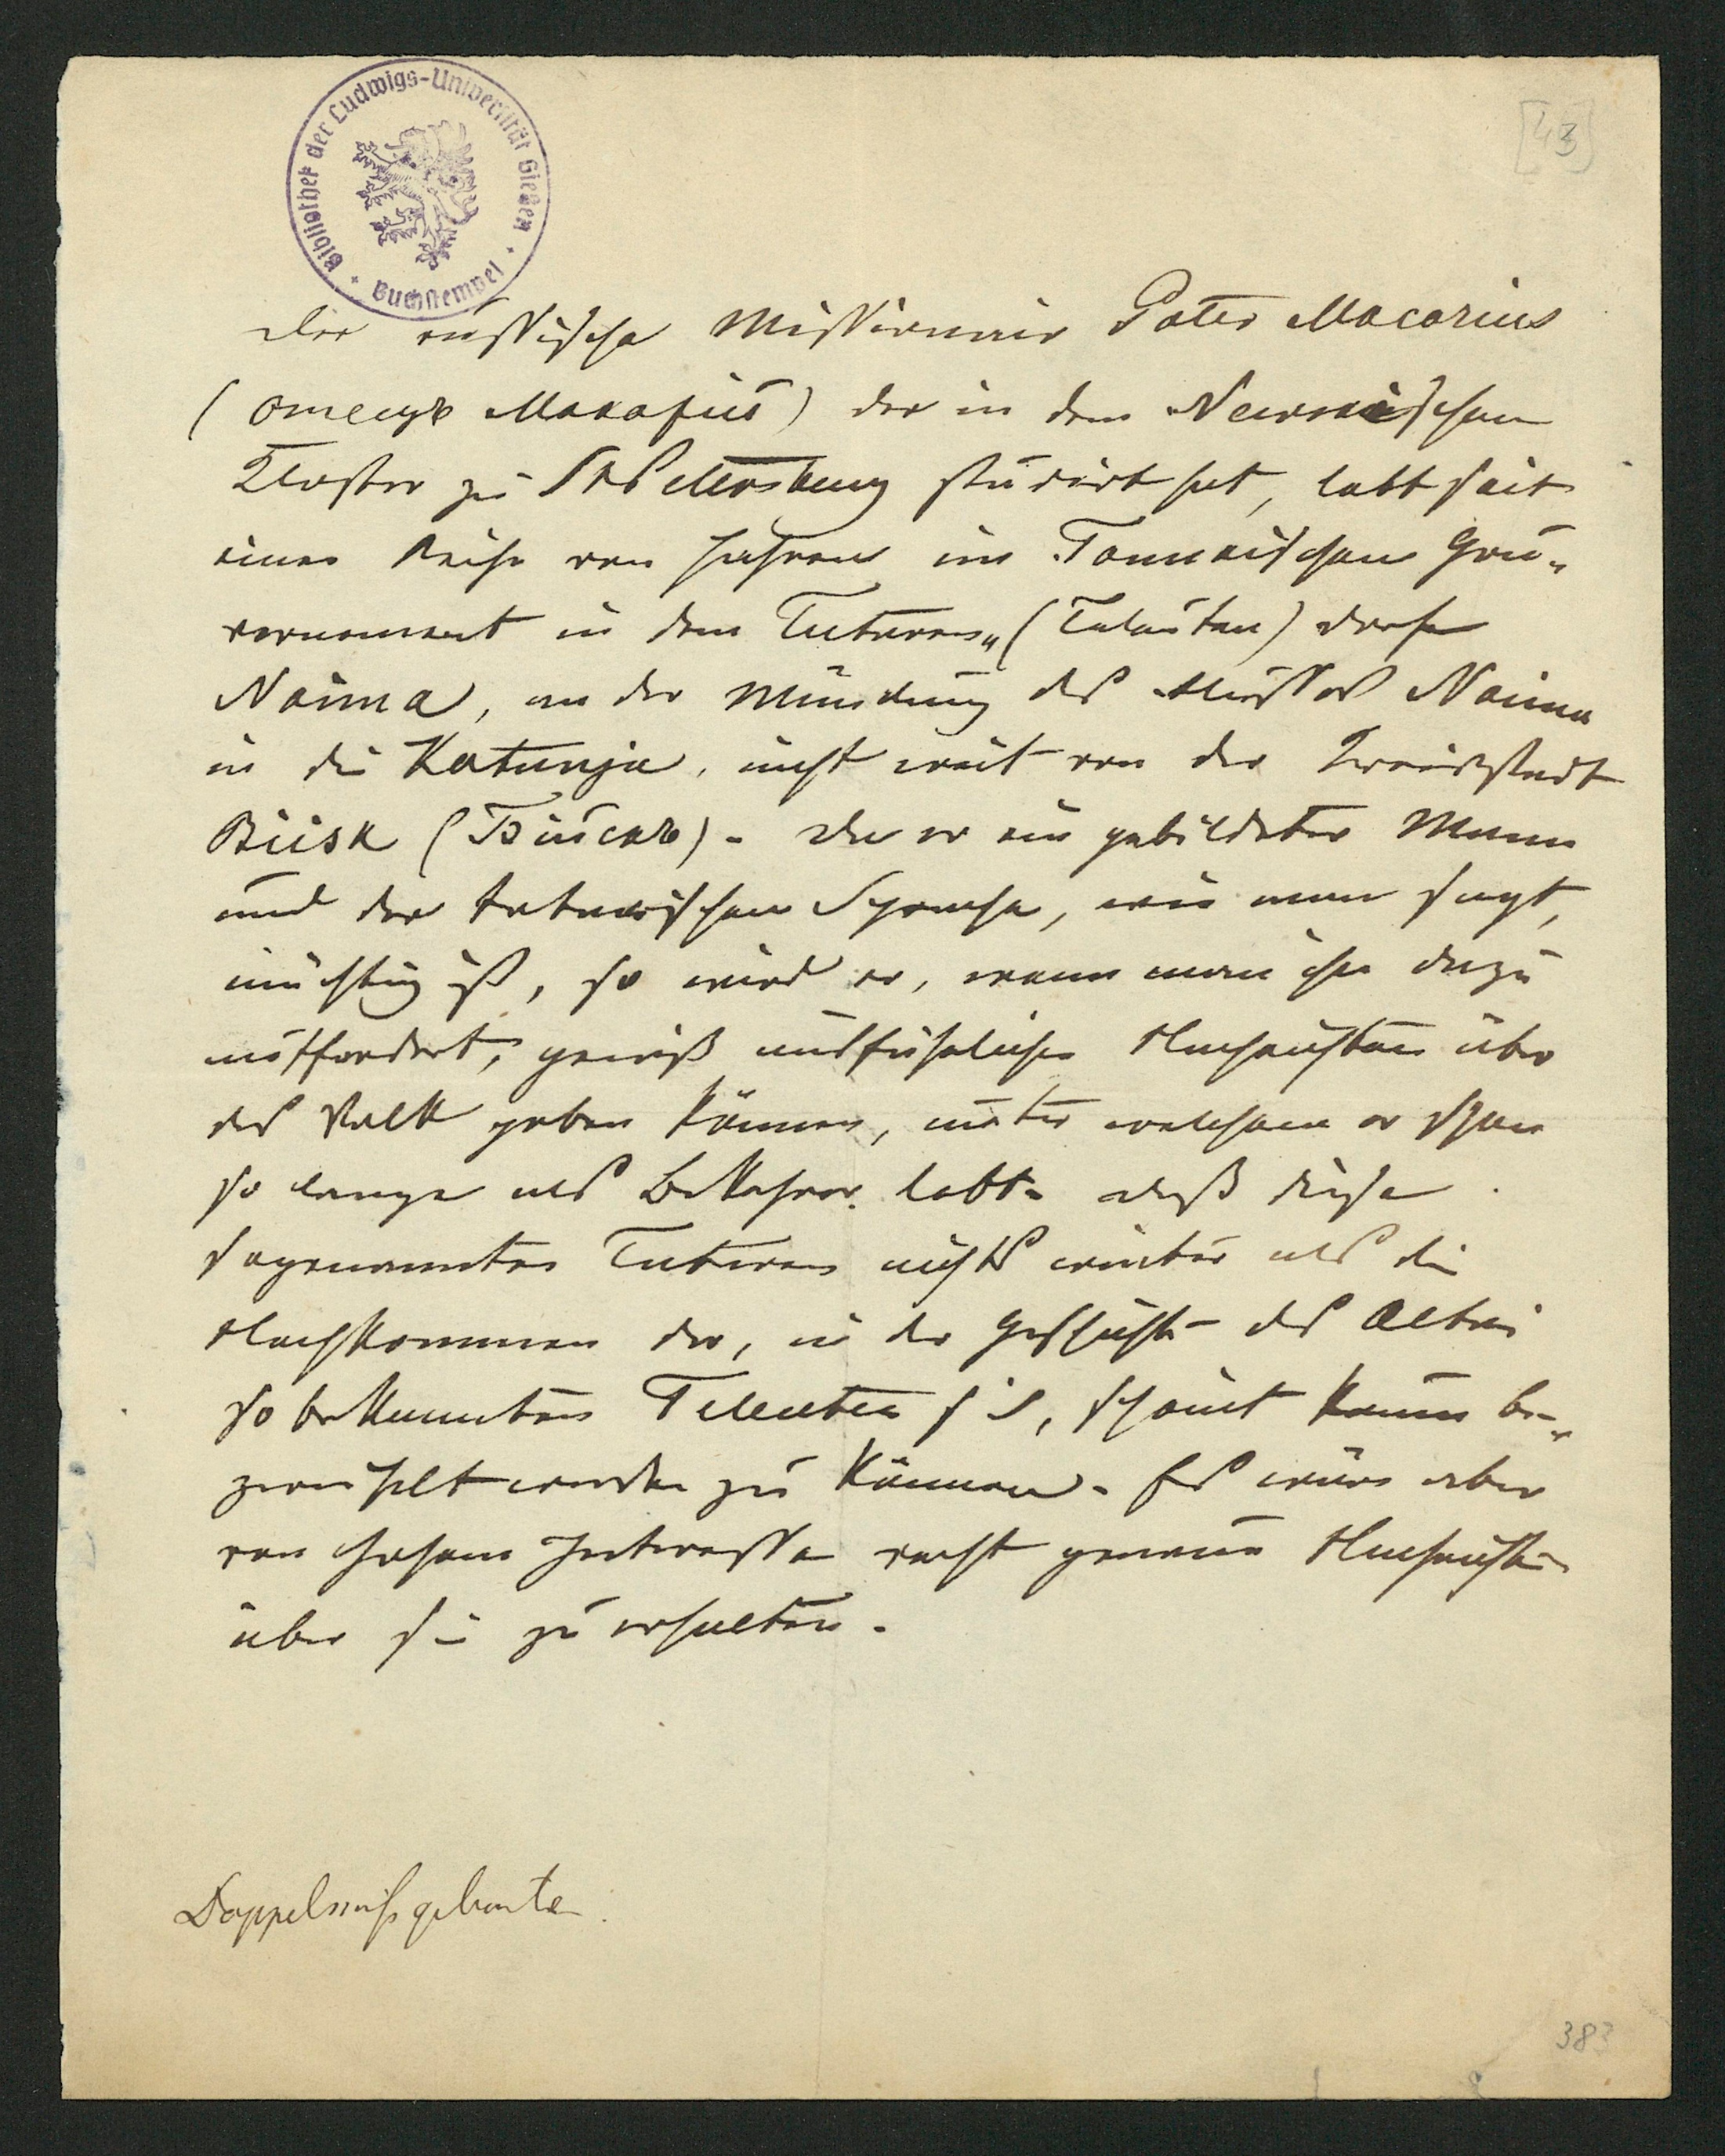 Bibliothek der Ludwigs-Universität Gießen
Buchstempel
[43]
Der russische Missionair Pater Macarius
(отецъ Макарій) der in dem Newskischen
Kloster zu St Petersburg studirt hat, lebt seit
einer Reihe von Jahren im Tomskischen Gou„
vernement in dem Tataren„ (Teleuten) dorfe
Naima, an der Mündung des Flusses Naima
in die Katunja, nicht weit von der Kreisstadt
Biisk (Бійскъ). Da er ein gebildeter Mann
und der tatarischen Sprache, wie man sagt,
mächtig ist, so wird er, wenn man ihn dazu
auffordert, gewiß ausführliche Nachrichten über
das Volk geben können, unter welchem er schon
so lange als Bekehrer lebt. Daß diese
sogenannten Tataren nichts weiter als die
Nachkommen der, in der Geschichte des Altai
so bekannten Teleuten sind, scheint kaum be„
zweifelt werden zu können. Es wäre aber
von hohem Interesse recht genaue Nachrichten
über sie zu erhalten.
Doppelmißgeburten.
383